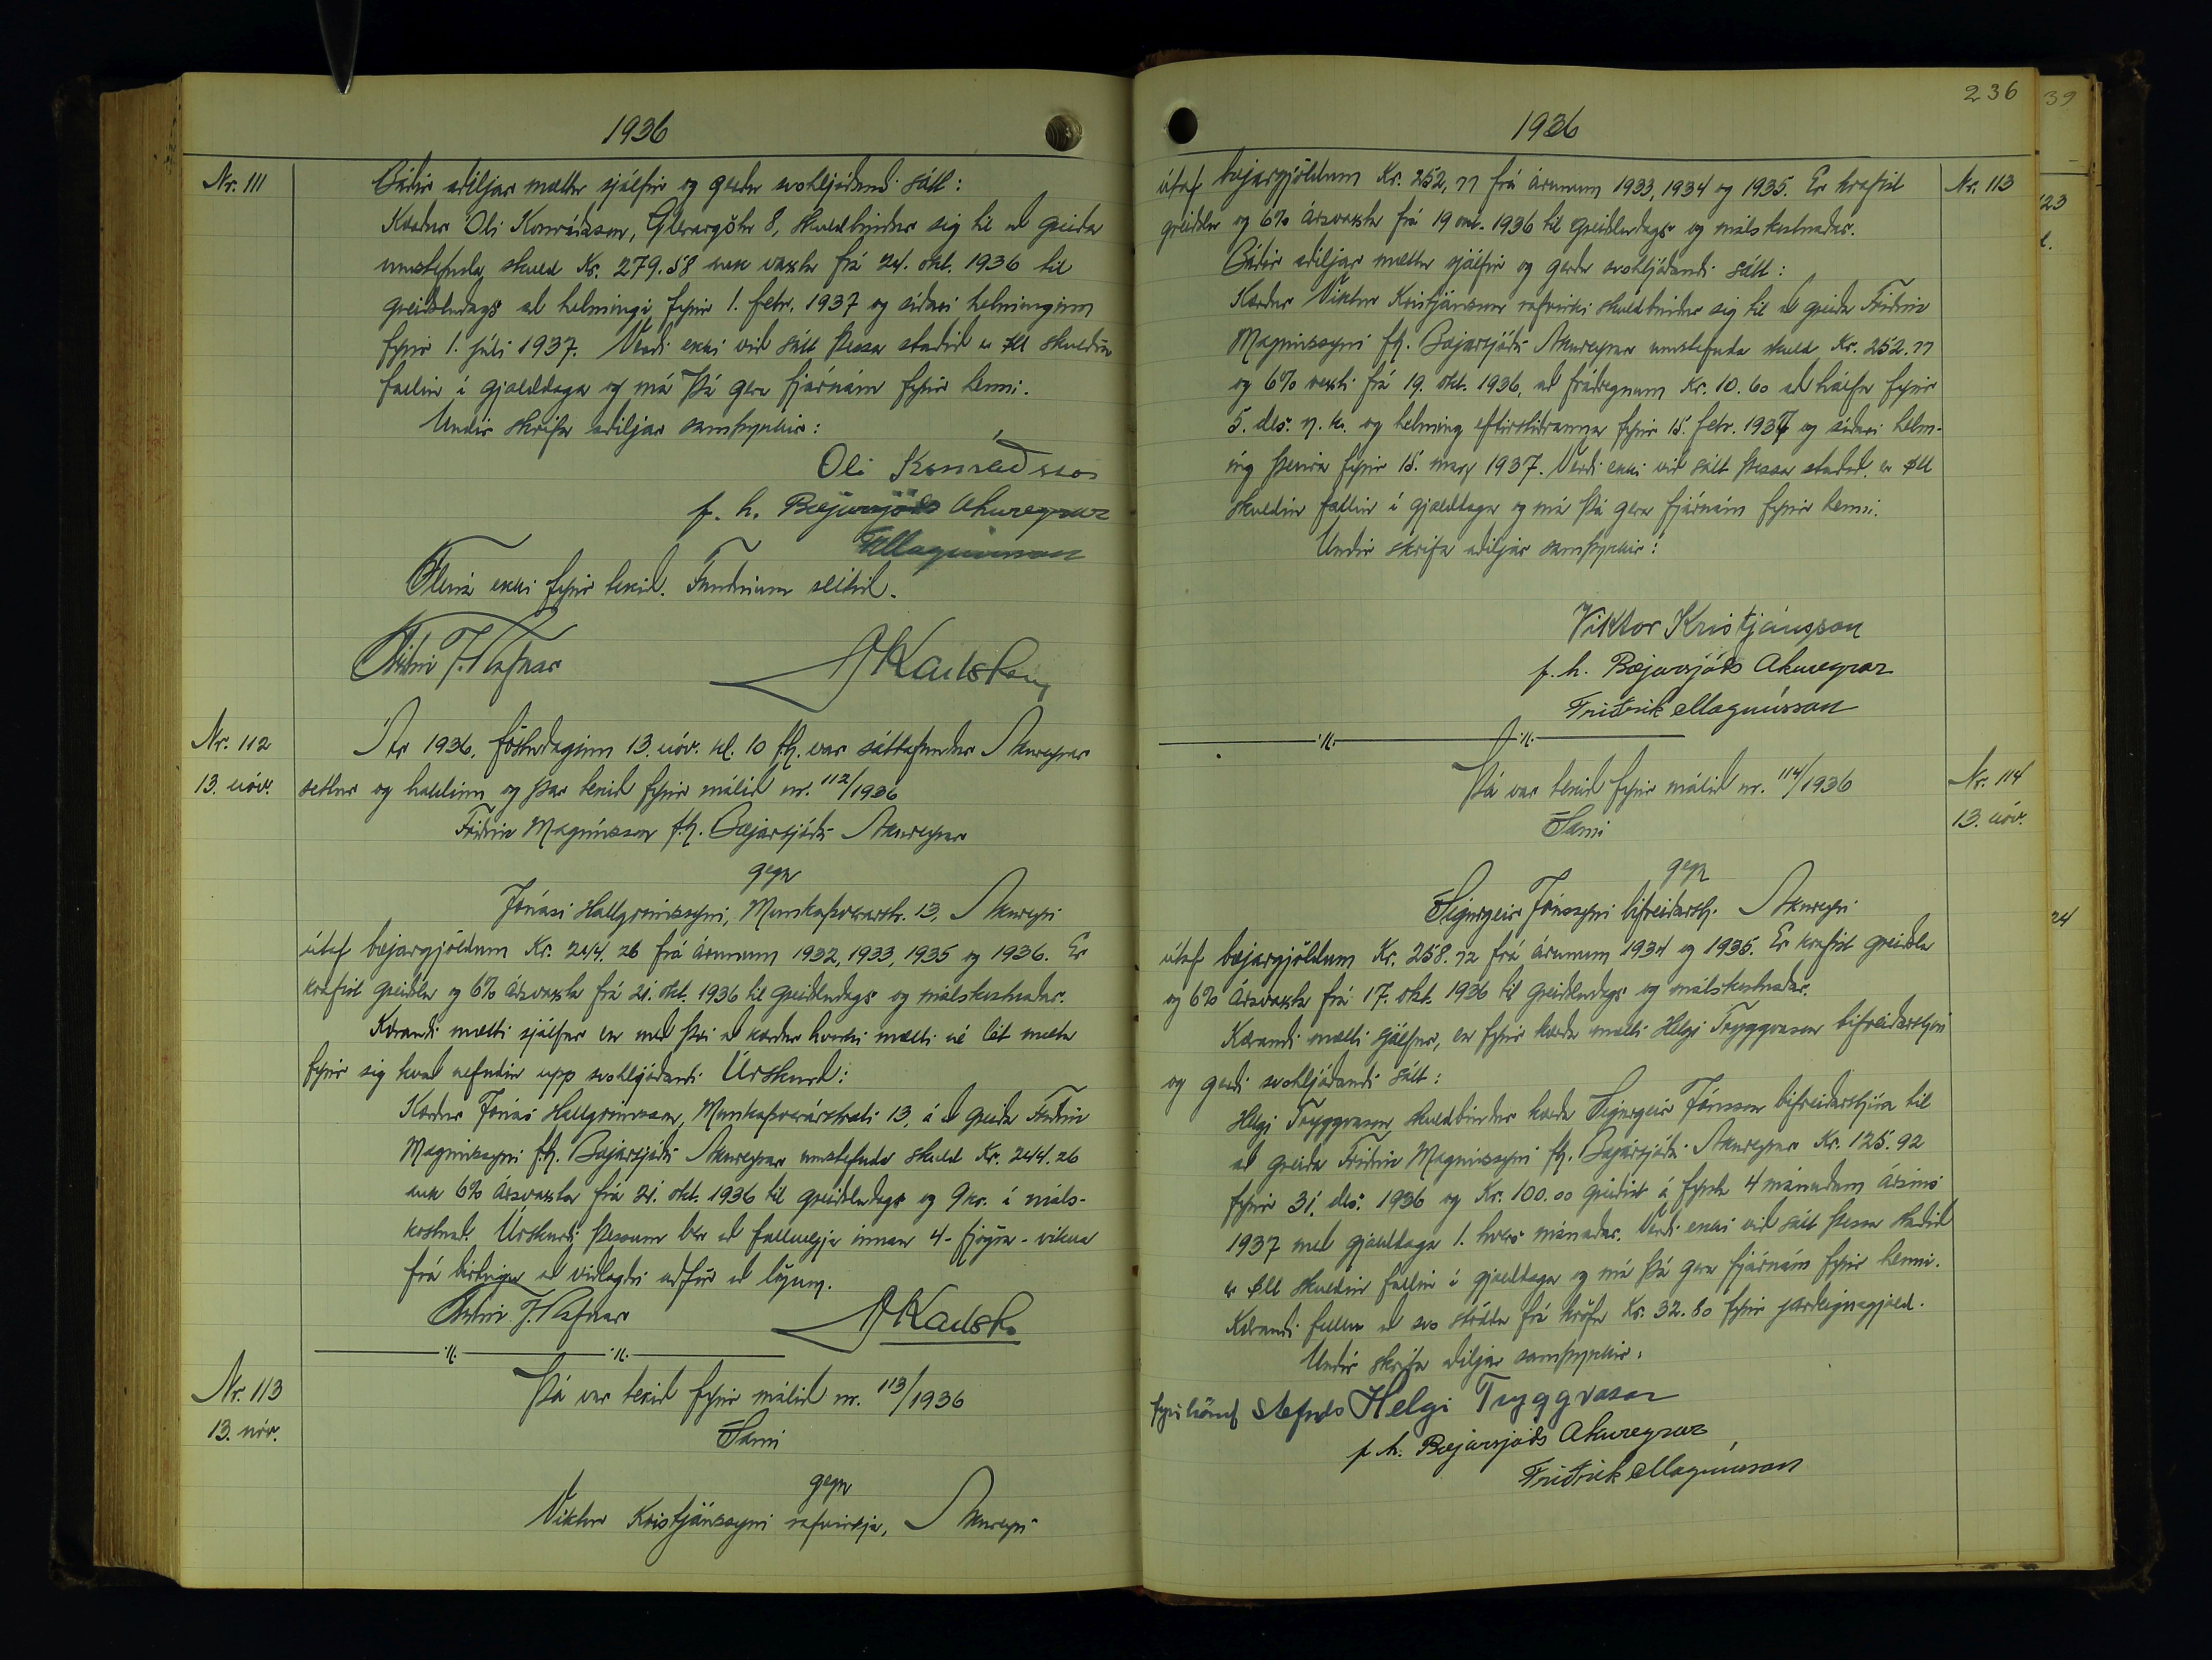 1936
Nr. 111
Báðir aðiljar mættu sjálfir og gerðu svohljóðandi sátt:
Kærður Óli Konráðsson, Glerárgötu 8, skuldbindur sig til að greiða
umstefnda skuld Kr. 279.58 auk vaxta frá 24. okt. 1936 til
greiðsludags að helmingi fyrir 1. febr. 1937 og síðari helminginn
fyrir 1. júlí 1937. Verði ekki við sátt þessa staðið er öll skuldin
fallin í gjalddaga og má þá gera fjárnám fyrir henni.
Undir skrifa aðiljar samþykkir:
Oli Konráðsson
f. h. Bæjarsjóðs Akureyrar
FMagnússon
Fleira ekki fyrir tekið. Fundinum slitið.
Friðrik J. Rafnar
Nr. 112
13. nóv.
Ár 1936, föstudaginn 13. nóv. kl. 10 fh. var sáttafundur Akureyrar
settur og haldinn og þar tekið fyrir málið nr. 112/1936
Friðrik Magnússon f.h. Bæjarsjóðs Akureyrar
gegn
Jónasi Hallgrímssyni, Munkaþverárstr. 13, Akureyri
útaf bæjargjöldum Kr. 244.26 frá árunum 1932, 1933, 1935 og 1936. Er
krafist greiðslu og 6% ársvaxta frá 21. okt. 1936 til greiðsludags og málskostnaðar.
Kærandi mætti sjálfur en með því að kærður hvorki mætti né lét mæta
fyrir sig kvað nefndin upp svohljóðandi Úrskurð:
Kærður Jónas Hallgrímsson, Munkaþverárstræti 13, á að greiða Friðrik
Magnússyni f.h. Bæjarsjóðs Akureyrar umstefnda skuld Kr. 244.26
auk 6% ársvaxta frá 21. okt. 1936 til greiðsludags og 9 kr. í máls-
kostnað. Úrskurði þessum ber að fullnægja innan 4 - fjögra - vikna
frá birtingu að viðlagðri aðför að lögum.
Friðrik J. Rafnar
Nr. 113
13. nóv.
Þá var tekið fyrir málið nr. 113/1936
Sami
gegn
Viktor Kristjánssyni rafvirkja, Akureyri
236
39
1936
Nr. 113
útaf bæjargjöldum Kr. 252,77 frá árunum 1933, 1934 og 1935. Er krafist
greiðslu og 6% ársvaxta frá 19 okt. 1936 til greiðsludags og málskostnaðar.
Báðir aðiljar mættu sjálfir og gerðu svohljóðandi sátt:
Kærður Viktor Kristjánsson rafvirki skuldbindur sig til að greiða Friðrik
Magnússyni fh. Bæjarsjóðs Akureyrar umstefnda skuld Kr. 252.77
og 6% vexti frá 19. okt. 1936, að frádregnum Kr. 10.60 að hálfu fyrir
5. des. n.k. og helming eftirstöðvanna fyrir 15. febr. 1937 og síðari helm-
ing þeirra fyrir 15. marz 1937. Verði ekki við sátt þessa staðið, er öll
skuldin fallin í gjalddaga og má þá gera fjárnám fyrir henni.
Undir skrifa aðiljar samþykkir:
Viktor Kristjánsson
f. h. Bæjarsjóðs Akureyrar
Friðrik Magnússon
Nr. 114
13. nóv.
Þá var tekið fyrir málið nr. 114/1936
Sami
gegn
Sigurgeir Jónssyni bifreiðarstj. Akureyri
útaf bæjargjöldum Kr. 258.72 frá árunum 1934 og 1935. Er krafist greiðslu
og 6% ársvaxta frá 17. okt. 1936 til greiðsludags og málskostnaðar.
Kærandi mætti sjálfur, en fyrir kærða mætti Helgi Tryggvason bifreiðarstjóri
og gerði svohljóðandi sátt:
Helgi Tryggvason skuldbindur kærða Sigurgeir Jónsson bifreiðarstjóra til
að greiða Friðrik Magnússyni fh. Bæjarsjóðs Akureyrar Kr. 125.92
fyrir 31. des. 1936 og Kr. 100.00 greiðist á fyrstu 4 mánuðum ársins
1937 með gjalddaga 1. hvers mánaðar. Verði ekki við sátt þessa staðið
er öll skuldin fallin í gjalddaga og má þá gera fjárnám fyrir henni.
Kærandi fellur að svo stöddu frá kröfu Kr. 32.80 fyrir fasteignagjald.
Undir skrifa aðiljar samþykkir:
fyrir hönd stefnds Helgi Tryggvason
f. h. Bæjarsjóðs Akureyrar
Friðrik Magnússon